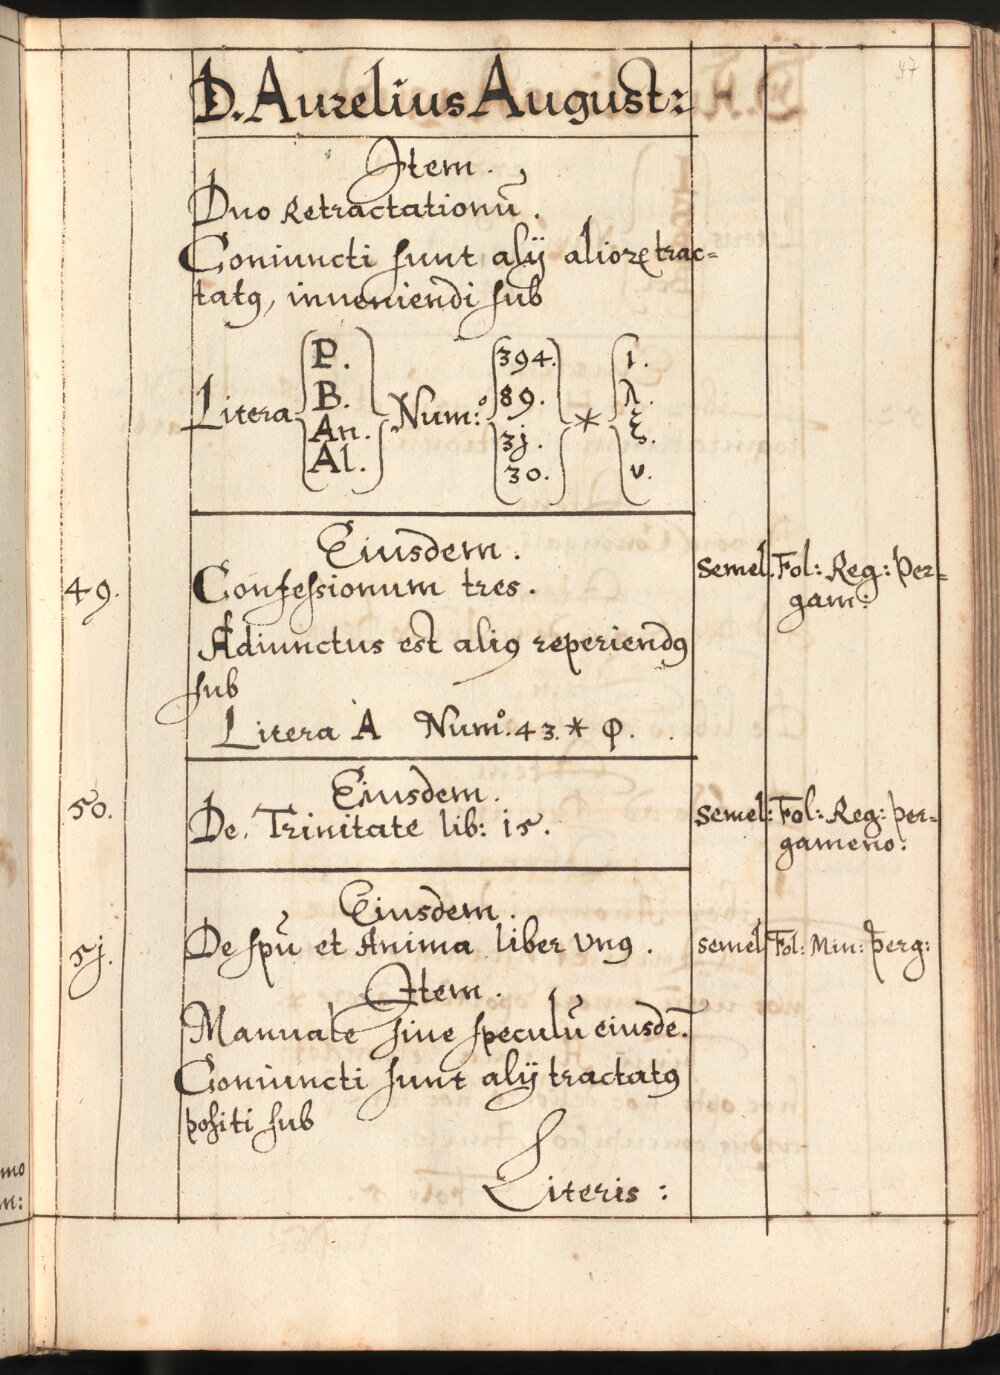 47
D. Aurelius August:
Item.
Duo Retractationū.
Coniuncti sunt alij alioꝝ trac=
tatꝯ, inveniendi sub
Litera P. B. An. Al. Num:o 394. 89. 3j. 30. * ι. λ. ξ. ν.
Eiusdem.
49. Confessionum tres. semel. Fol: Reg: Per=
gam:
Adiunctus est aliꝯ reperiendꝯ
sub
Litera A Numo. 43. * φ.
Eiusdem.
50. De Trinitate lib: 15. semel: Fol: Reg: per=
gameno:
Eiusdem.
5j. De spū et Anima liber vnꝯ. semel Fol: Min: perg:
Item.
Manuale siue speculū eiusdē.
Coniuncti sunt alij tractatꝯ
positi sub
Literis:
mo
m: